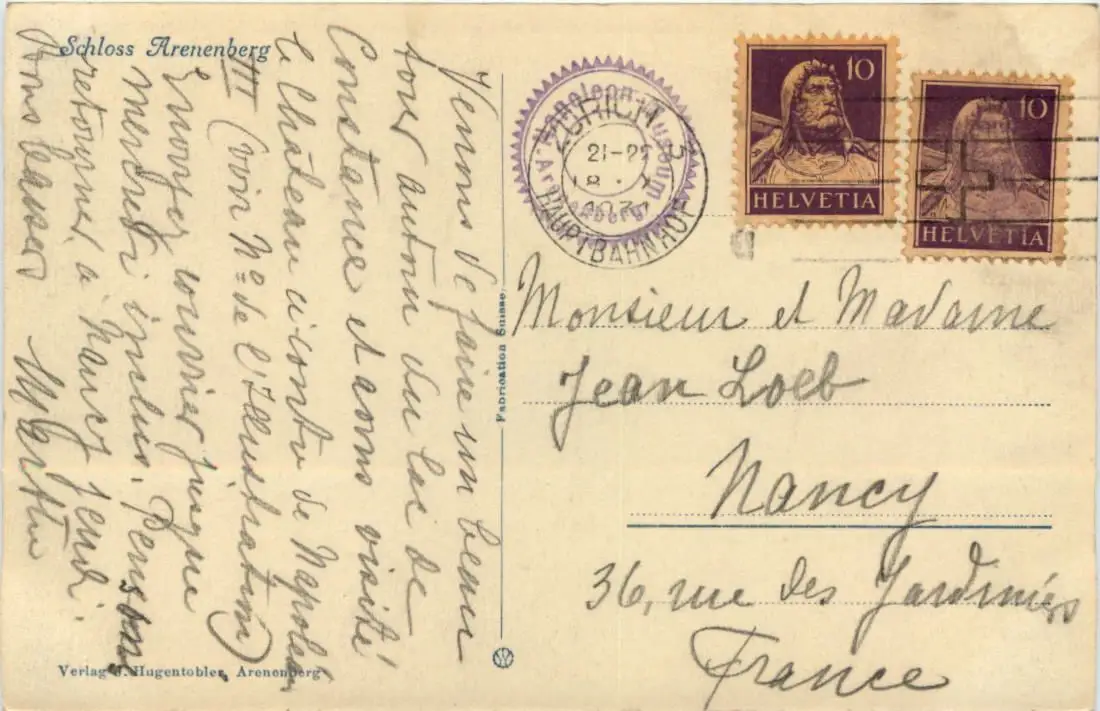 Schloss Arenenberg
Venons de faire un beau
tour autour du lac de
Constance et avons visité
le Château ci-contre de Napoléon
III (voir Nº de l'Illustration)
Envoyez courrier jusque
mercredi inclus. Pensons
retourner à Nancy jeudi.
Bons baisers
Verlag J. Hugentobler, Arenenberg
Fabrication Suisse.
Napoleon-Museum
Arenenberg
ZÜRICH 3
21-22
18.
HAUPTBAHNHOF
10
HELVETIA
10
HELVETIA
Monsieur et Madame
Jean Loeb
Nancy
36, rue des Jardiniers
France